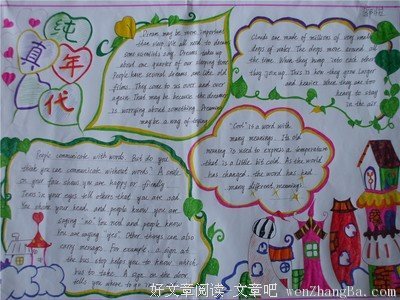 纯
真
年
代
Dream may be more important
than sleep. We all need to dream
some scientists say. Dreams take up
about one quarter of our sleeping time
People have several dreams each
films. They come to us over and over
again. That may be because the dreamer
is worrying about something. Dreaming
may be a way of trying
Clouds are made of millions of very small
drops of water. The drops move around all
the time. When they bump into each other
they grow up. This is how they grow larger
and heavier when they are too
heavy to stay
in the air
"Cool" is a word with
many meanings. Its old
meaning is used to express a temperature
that is a little bit cold. As the world
has changed, the word has had
many different meanings.
People communicate with words. But do you
think you can communicate without words? A smile
on your face shows you are happy or friendly
Tears in your eyes tell others that you are sad
You shake your head, and people know you are
saying "no". You nod and people know
you are saying "yes". Other things can also
carry message. For example, a sign at
the bus stop helps you to know which
bus to take. A sign on the door
tells you where to go
好文章阅读-文章吧 wenZhangBa.com